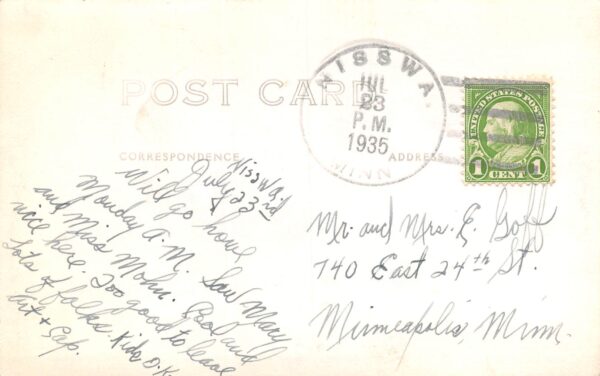 POST CARD
CORRESPONDENCE
ADDRESS
NISSWA
JUL
23
P.M.
1935
MINN
UNITED STATES POSTAGE
1 CENT 1
Nisswa
July 23rd
Will go home
Monday A.M. Saw Mary
and Miss Mohn. Cool and
nice here. Too good to leave
Lots of folks. Kids O.K.
Art +
Mr. and Mrs. E. Goff
740 East 24th St.
Minneapolis, Minn.